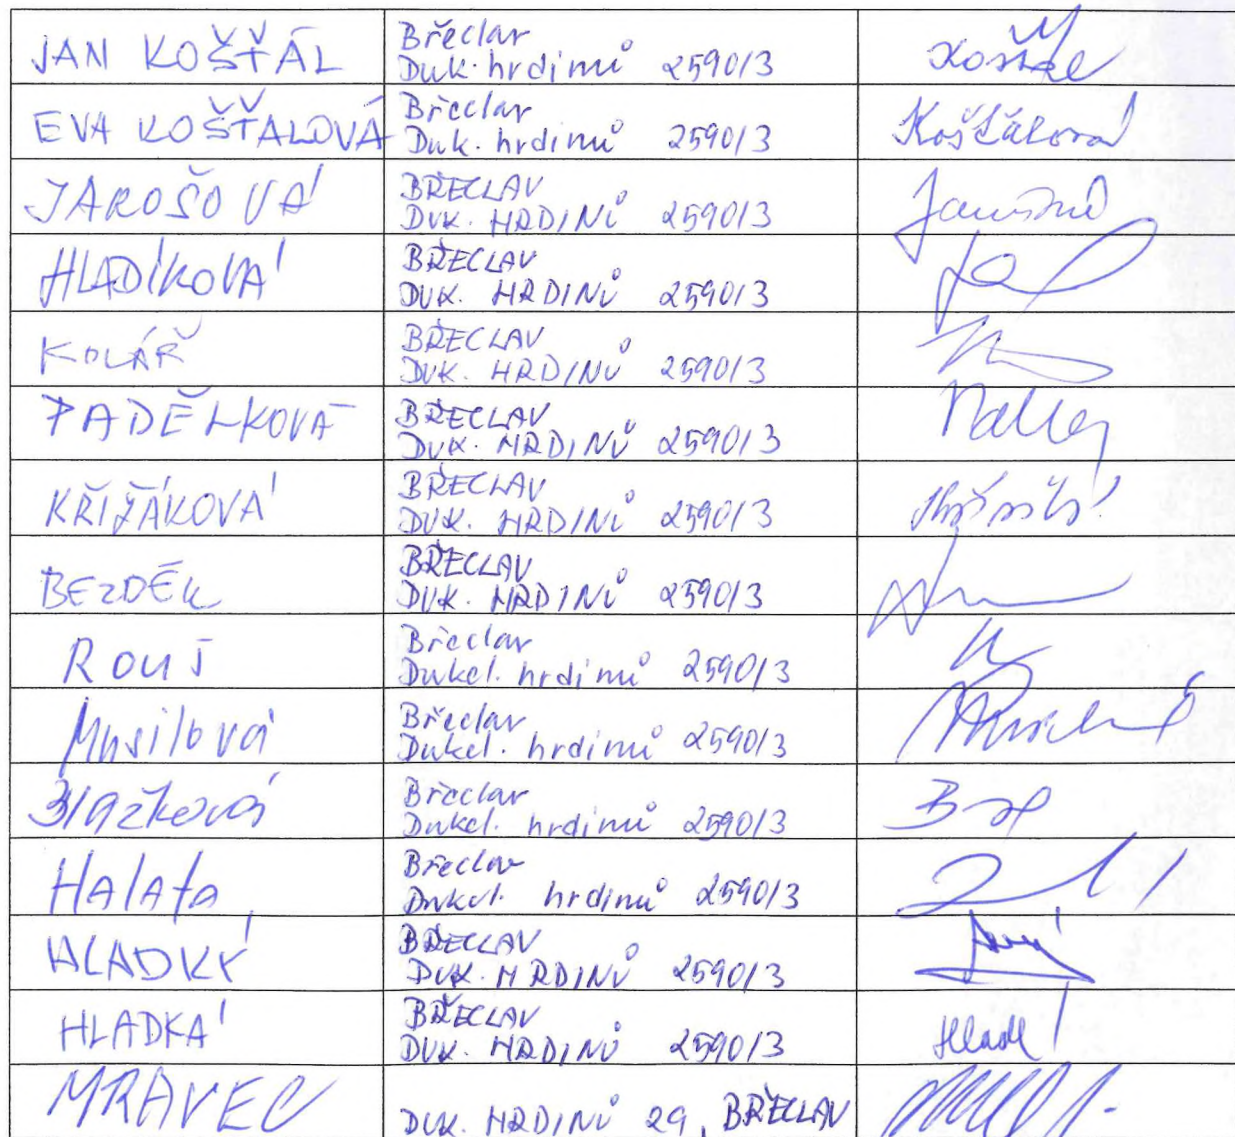 JAN KOŠŤÁL
Břeclav
Duk. hrdinů 2590/3
Košťál
EVA KOŠŤALOVÁ
Břeclav
Duk. hrdinů 2590/3
Košťálová
JAROŠOVÁ
BŘECLAV
DUK. HRDINŮ 2590/3
HLADÍKOVÁ
BŘECLAV
DUK. HRDINŮ 2590/3
KOLÁŘ
BŘECLAV
DUK. HRDINŮ 2590/3
PADĚLKOVÁ
BŘECLAV
DUK. HRDINŮ 2590/3
KŘIŽÁKOVÁ
BŘECLAV
DUK. HRDINŮ 2590/3
BEZDĚK
BŘECLAV
DUK. HRDINŮ 2590/3
Břeclav
Dukel. hrdinů 2590/3
Musilová
Břeclav
Dukel. hrdinů 2590/3
Blažková
Břeclav
Dukel. hrdinů 2590/3
Halata
Břeclav
Dukel. hrdinů 2590/3
HLADKÝ
BŘECLAV
DUK. HRDINŮ 2590/3
HLADKÁ
BŘECLAV
DUK. HRDINŮ 2590/3
MRAVEC
DUK. HRDINŮ 29, BŘECLAV